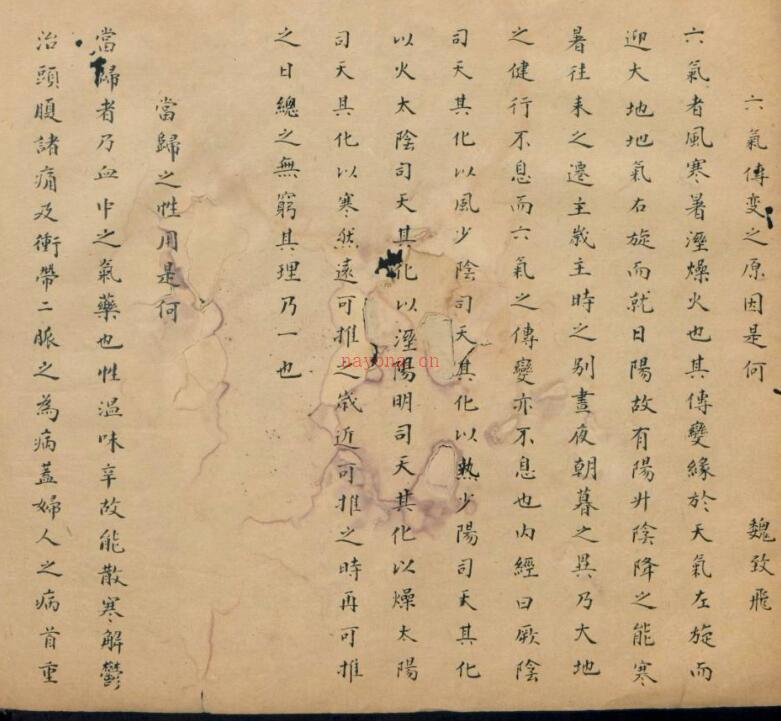 六氣傳变之原因是何 魏致飛
六氣者風寒暑溼燥火也其傳變緣於天氣左旋而
迎大地地氣右旋而就日陽故有陽升陰降之能寒
暑往來之遷主歲主時之别晝夜朝暮之異乃大地
之健行不息而六氣之傳變亦不息也内經曰厥陰
司天其化以風少陰司天其化以熱少陽司天其化
以火太陰司天其化以溼陽明司天其化以燥太陽
司天其化以寒然遠可推之歲近可推之時再可推
之日總之無窮其理乃一也
當歸之性用是何
當歸者乃血中之氣藥也性温味辛故能散寒解鬱
治頭腹諸痛及衝帶二脈之為病蓋婦人之病首重
nayona.cn